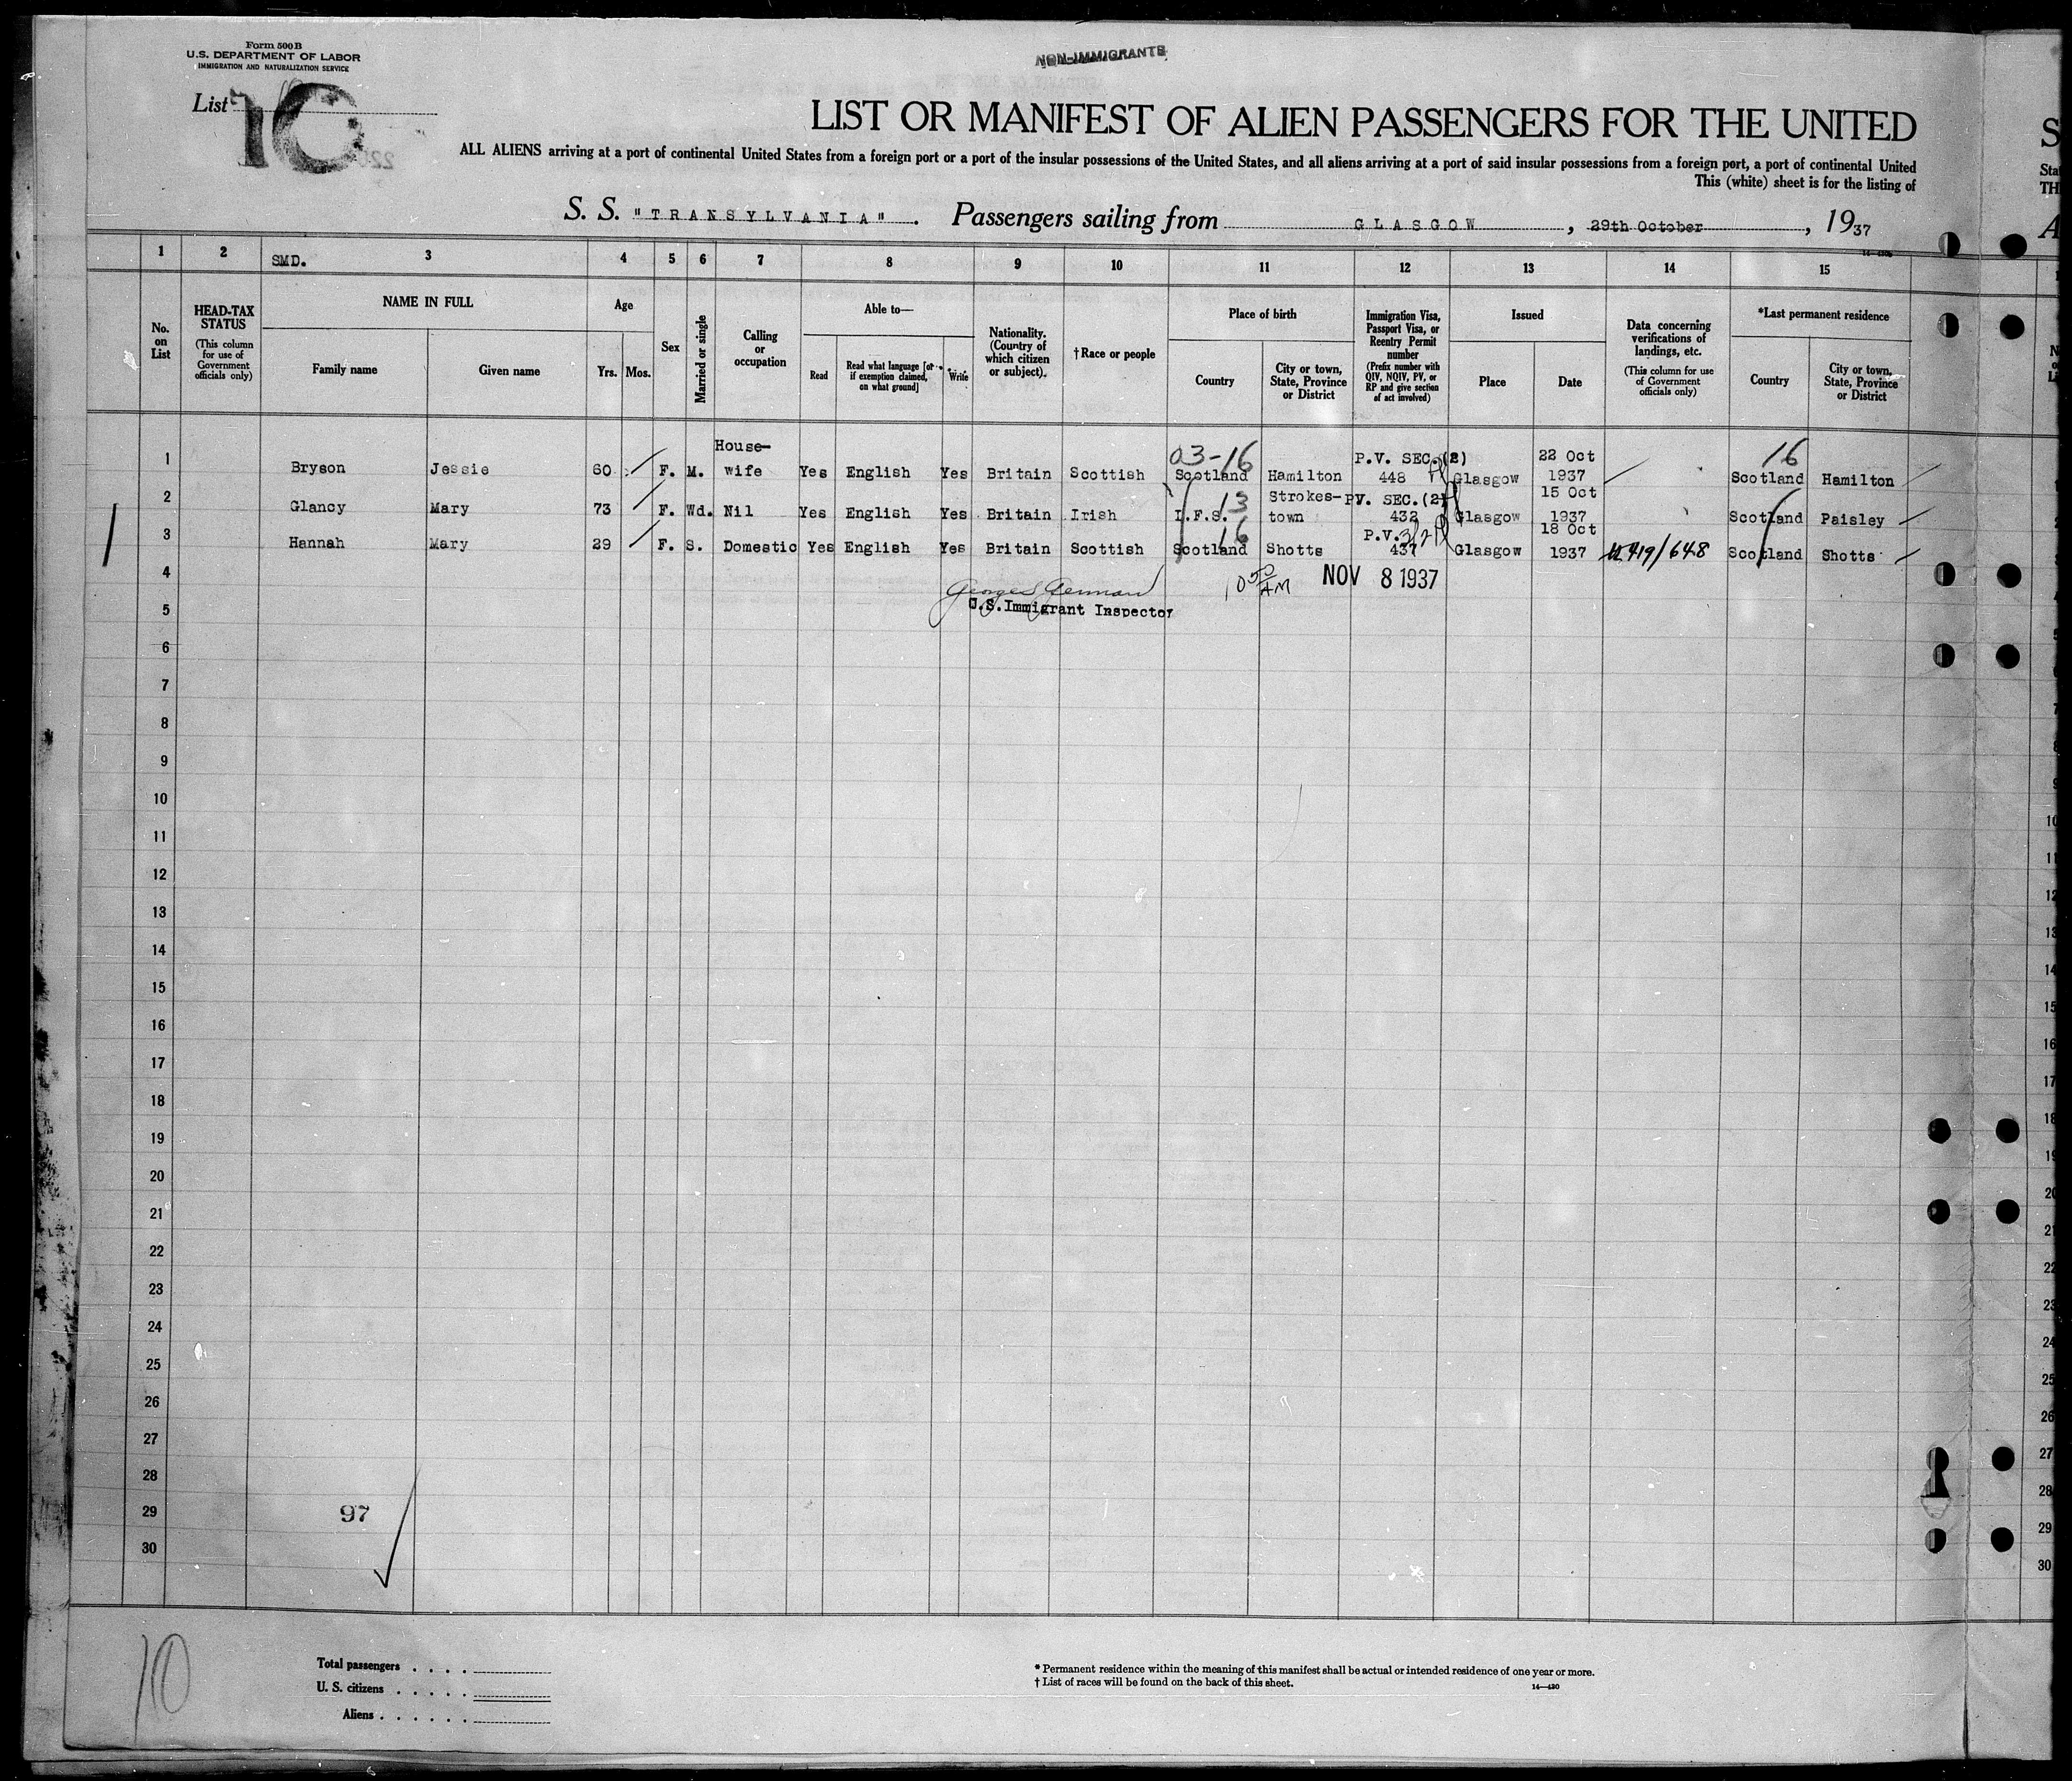 Form 500B
U.S. DEPARTMENT OF LABOR
IMMIGRATION AND NATURALIZATION SERVICE
NON-IMMIGRANTS
List 10
LIST OR MANIFEST OF ALIEN PASSENGERS FOR THE UNITED
ALL ALIENS arriving at a port of continental United States from a foreign port or a port of the insular possessions of the United States, and all aliens arriving at a port of said insular possessions from a foreign port, a port of continental United
This (white) sheet is for the listing of
S. S. "TRANSYLVANIA". Passengers sailing from GLASGOW, 29th October, 1937
1 2 SMD. 3 4 5 6 7 8 9 10 11 12 13 14 15
No. on List
HEAD-TAX STATUS (This column for use of Government officials only)
NAME IN FULL
Family name
Given name
Age
Yrs. Mos.
Sex
Married or single
Calling or occupation
Able to—
Read
Read what language [or if exemption claimed, on what ground]
Write
Nationality. (Country of which citizen or subject).
†Race or people
Place of birth
Country
City or town, State, Province or District
Immigration Visa, Passport Visa, or Reentry Permit number (Prefix number with QIV, NQIV, PV, or RP and give section of act involved)
Issued
Place
Date
Data concerning verifications of landings, etc. (This column for use of Government officials only)
*Last permanent residence
Country
City or town, State, Province or District
1 Bryson Jessie 60 F. M. House-wife Yes English Yes Britain Scottish 03-16 Scotland Hamilton P.V. SEC.(2) 448 Glasgow 22 Oct 1937 16 Scotland Hamilton
2 Glancy Mary 73 F. Wd. Nil Yes English Yes Britain Irish 13 I.F.S. Strokes-town PV. SEC.(2) 432 Glasgow 15 Oct 1937 Scotland Paisley
3 Hannah Mary 29 F. S. Domestic Yes English Yes Britain Scottish 16 Scotland Shotts P.V. 3/2 437 Glasgow 18 Oct 1937 419/648 Scotland Shotts
4 10 50 AM NOV 8 1937
5 U.S. Immigrant Inspector
6
7
8
9
10
11
12
13
14
15
16
17
18
19
20
21
22
23
24
25
26
27
28
29 97
30
10
Total passengers
U. S. citizens
Aliens
* Permanent residence within the meaning of this manifest shall be actual or intended residence of one year or more.
† List of races will be found on the back of this sheet.
14—430